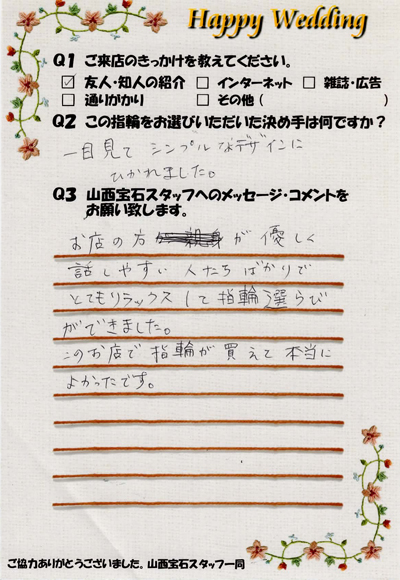 Happy Wedding
Q1 ご来店のきっかけを教えてください。
☑ 友人・知人の紹介 □ インターネット □ 雑誌・広告
□ 通りがかり □ その他 ( )
Q2 この指輪をお選びいただいた決め手は何ですか？
一目見て シンプルなデザインに
ひかれました。
Q3 山西宝石スタッフへのメッセージ・コメントを
お願い致します。
お店の方が優しく
話しやすい人たちばかりで
とてもリラックスして指輪選らび
ができました。
このお店で指輪が買えて本当に
よかったです。
ご協力ありがとうございました。山西宝石スタッフ一同